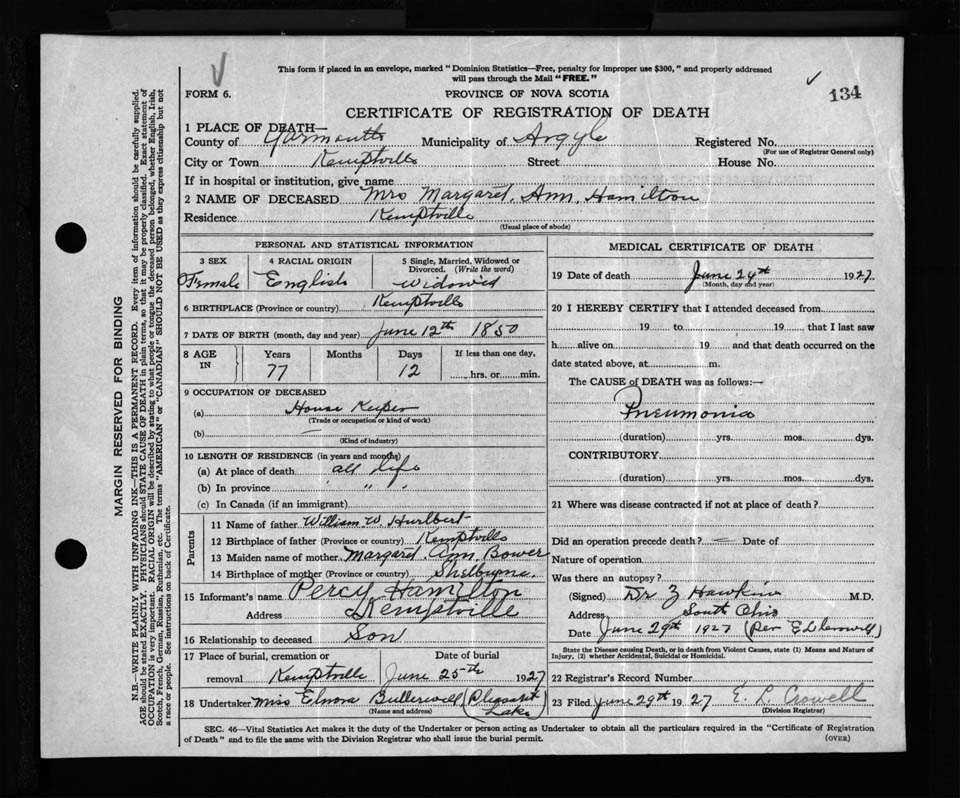 This form if placed in an envelope, marked "Dominion Statistics—Free, penalty for improper use $300," and properly addressed
will pass through the Mail "FREE."
134
FORM 6.
PROVINCE OF NOVA SCOTIA
CERTIFICATE OF REGISTRATION OF DEATH
1 PLACE OF DEATH—
County of Yarmouth Municipality of Argyle Registered No.
(For use of Registrar General only)
City or Town Kemptville Street House No.
If in hospital or institution, give name
2 NAME OF DECEASED Mrs Margaret Ann Hamilton
Residence Kemptville
(Usual place of abode)
PERSONAL AND STATISTICAL INFORMATION
3 SEX 4 RACIAL ORIGIN 5 Single, Married, Widowed or Divorced. (Write the word)
Female English Widowed
6 BIRTHPLACE (Province or country) Kemptville
7 DATE OF BIRTH (month, day and year) June 12th 1850
8 AGE IN Years Months Days If less than one day,
77 12 hrs. or min.
9 OCCUPATION OF DECEASED
(a) House Keeper
(Trade or occupation or kind of work)
(b)
(Kind of industry)
10 LENGTH OF RESIDENCE (in years and months)
(a) At place of death all life
(b) In province " " "
(c) In Canada (if an immigrant)
Parents
11 Name of father William W. Hurlbert
12 Birthplace of father (Province or country) Kemptville
13 Maiden name of mother Margaret Ann Bower
14 Birthplace of mother (Province or country) Shelburne
15 Informant's name Percy Hamilton
Address Kemptville
16 Relationship to deceased Son
17 Place of burial, cremation or removal Date of burial
Kemptville June 25th 1927
18 Undertaker Miss Elnora (Pleasant Lake)
(Name and address)
MEDICAL CERTIFICATE OF DEATH
19 Date of death June 24th 1927
(Month, day and year)
20 I HEREBY CERTIFY that I attended deceased from
19 to 19 that I last saw
h alive on 19 and that death occurred on the
date stated above, at m.
The CAUSE of DEATH was as follows:—
Pneumonia
(duration) yrs. mos. dys.
CONTRIBUTORY
(duration) yrs. mos. dys.
21 Where was disease contracted if not at place of death?
Did an operation precede death? Date of
Nature of operation
Was there an autopsy?
(Signed) Dr Z Hawkins M.D.
Address South Ohio
Date June 29th 1927 (Per
State the Disease causing Death, or in death from Violent Causes, state (1) Means and Nature of
Injury, (2) whether Accidental, Suicidal or Homicidal.
22 Registrar's Record Number
23 Filed June 29th 1927 E. L. Crowell
(Division Registrar)
SEC. 46—Vital Statistics Act makes it the duty of the Undertaker or person acting as Undertaker to obtain all the particulars required in the "Certificate of Registration
of Death" and to file the same with the Division Registrar who shall issue the burial permit.
(OVER)
MARGIN RESERVED FOR BINDING
N.B.—WRITE PLAINLY WITH UNFADING INK—THIS IS A PERMANENT RECORD. Every item of information should be carefully supplied.
AGE should be stated EXACTLY. PHYSICIANS should STATE CAUSE OF DEATH in plain terms, so that it may be properly classified. Exact statement of
OCCUPATION is very important. RACIAL ORIGIN will be described by stating to what people or tongue the deceased person belonged, whether English, Irish,
Scotch, French, German, Russian, Ruthenian, etc. The terms "AMERICAN" or "CANADIAN" SHOULD NOT BE USED as they express citizenship but not
a race or people. See instructions on back of Certificate.